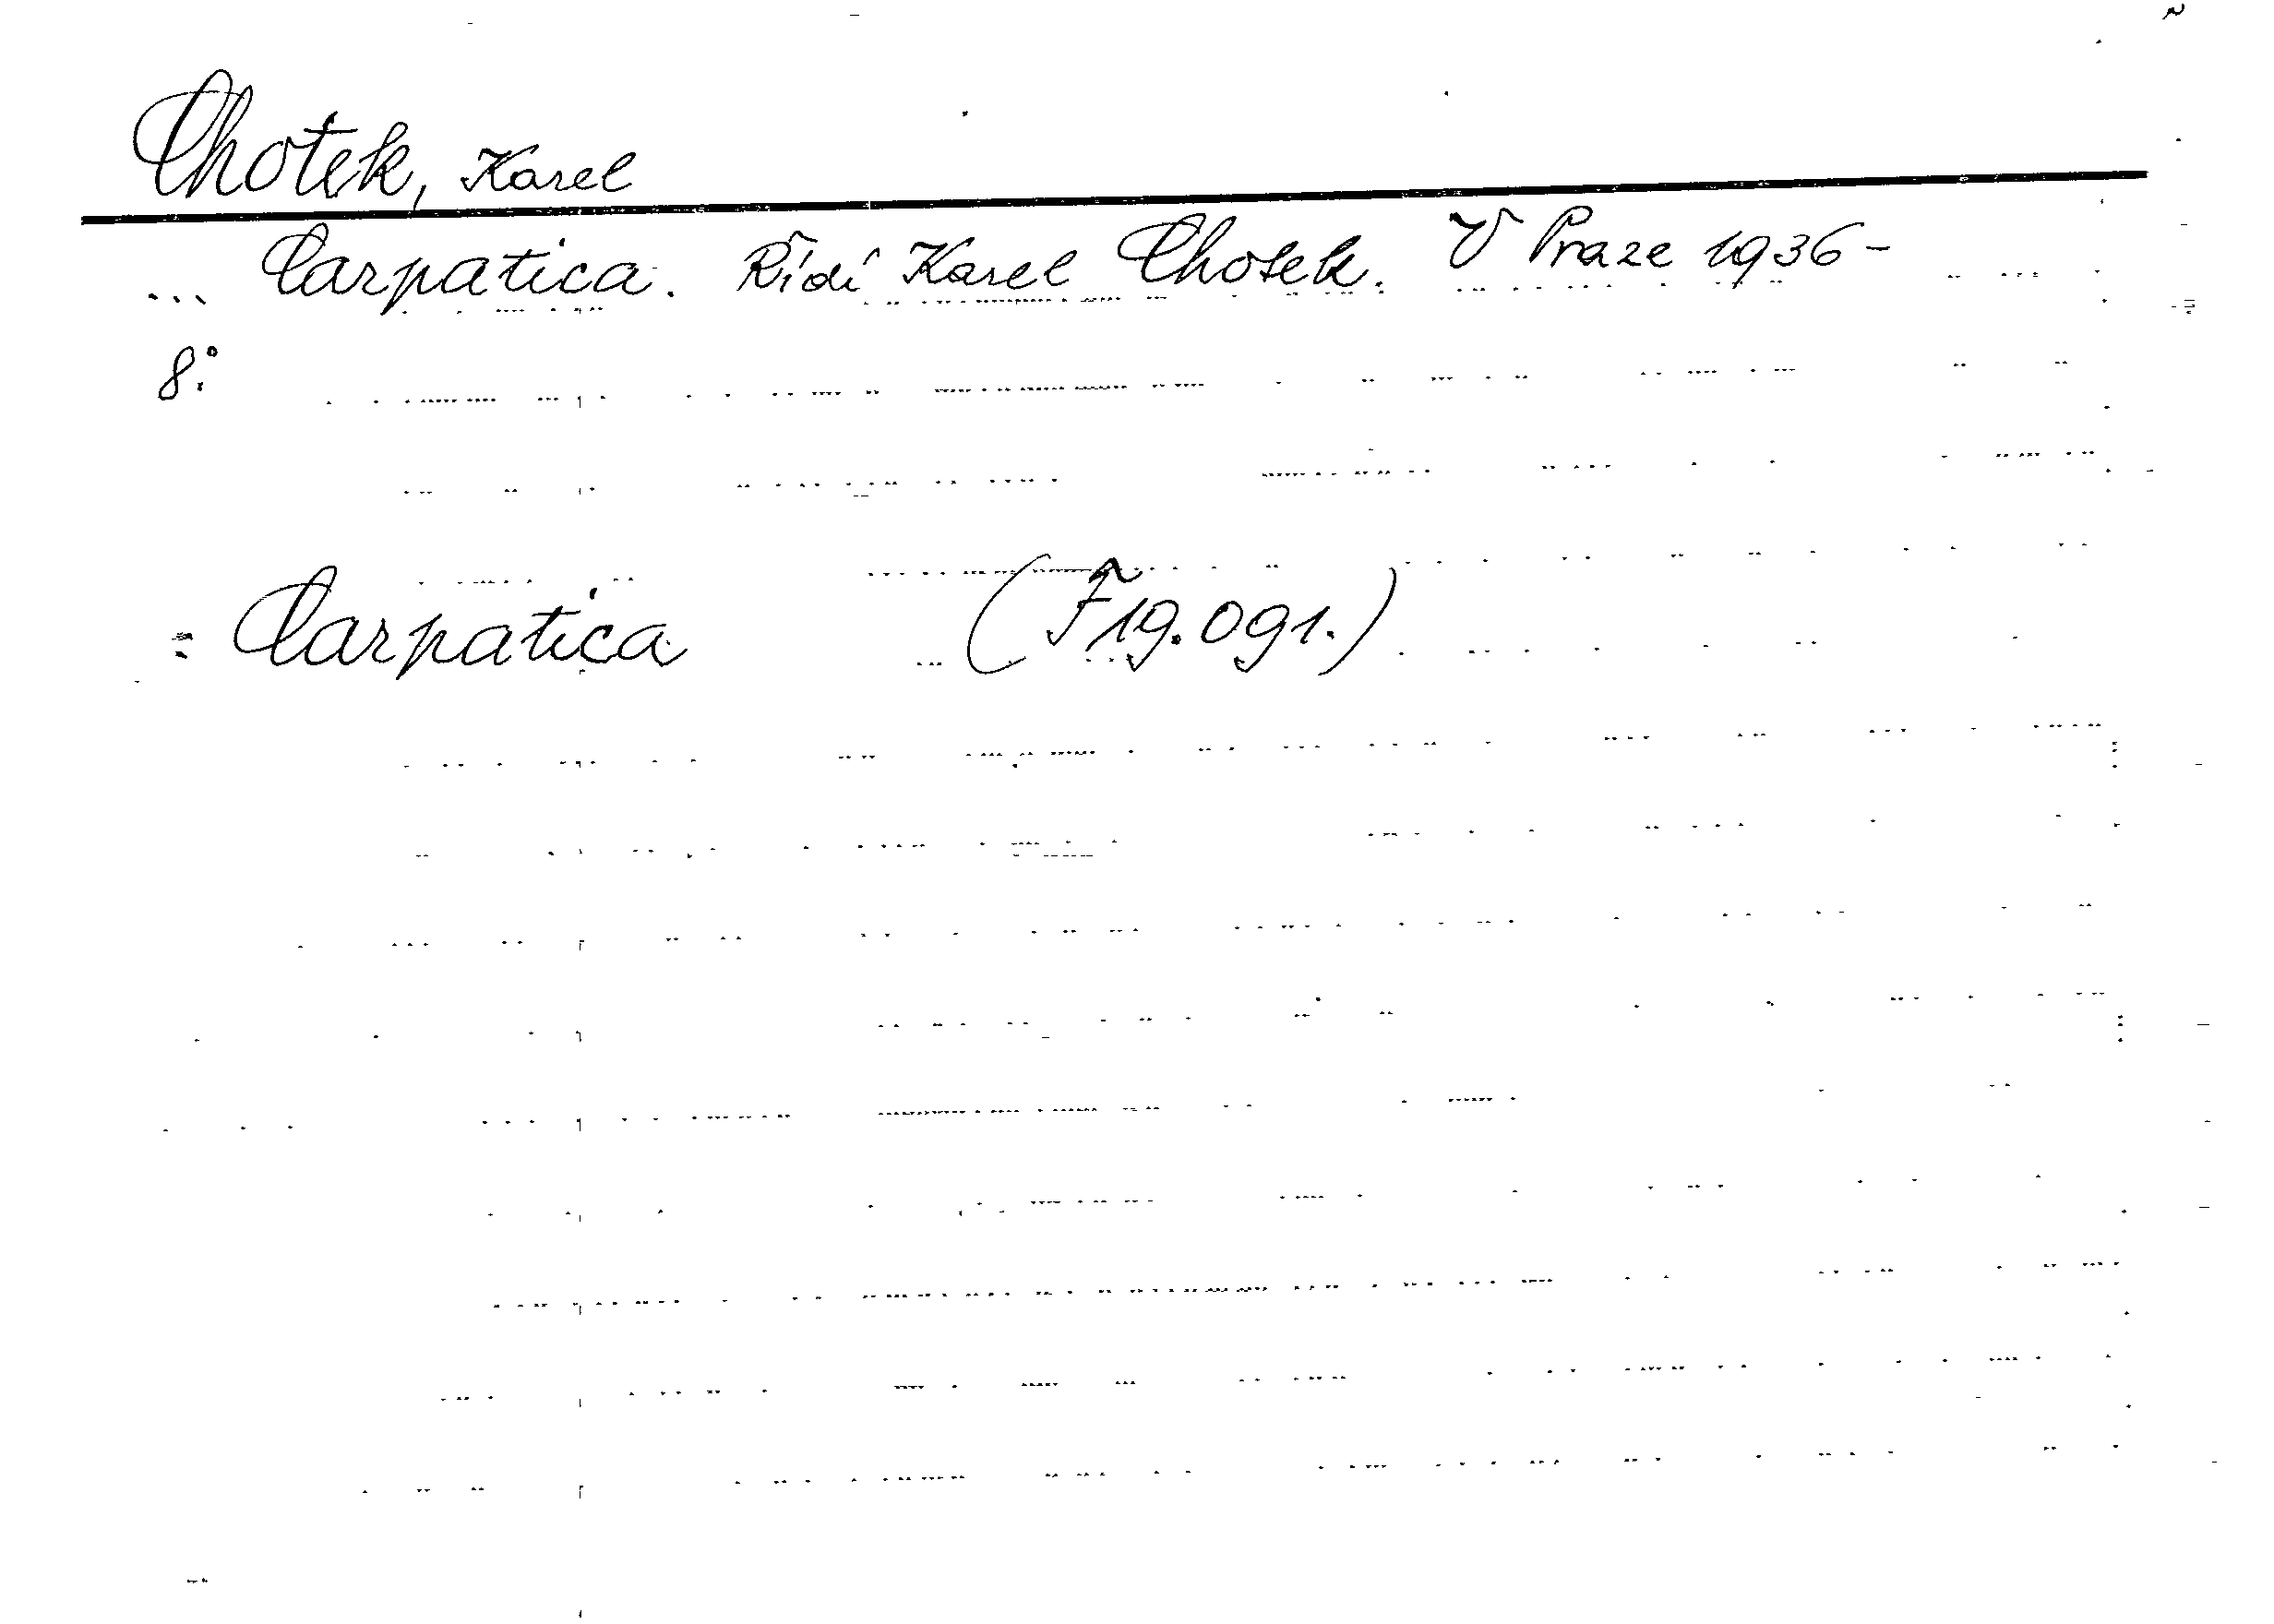 Chotek, Karel
... Carpatica. Řídí Karel Chotek. V Praze 1936-
8:°
= Carpatica (F 19.091.)